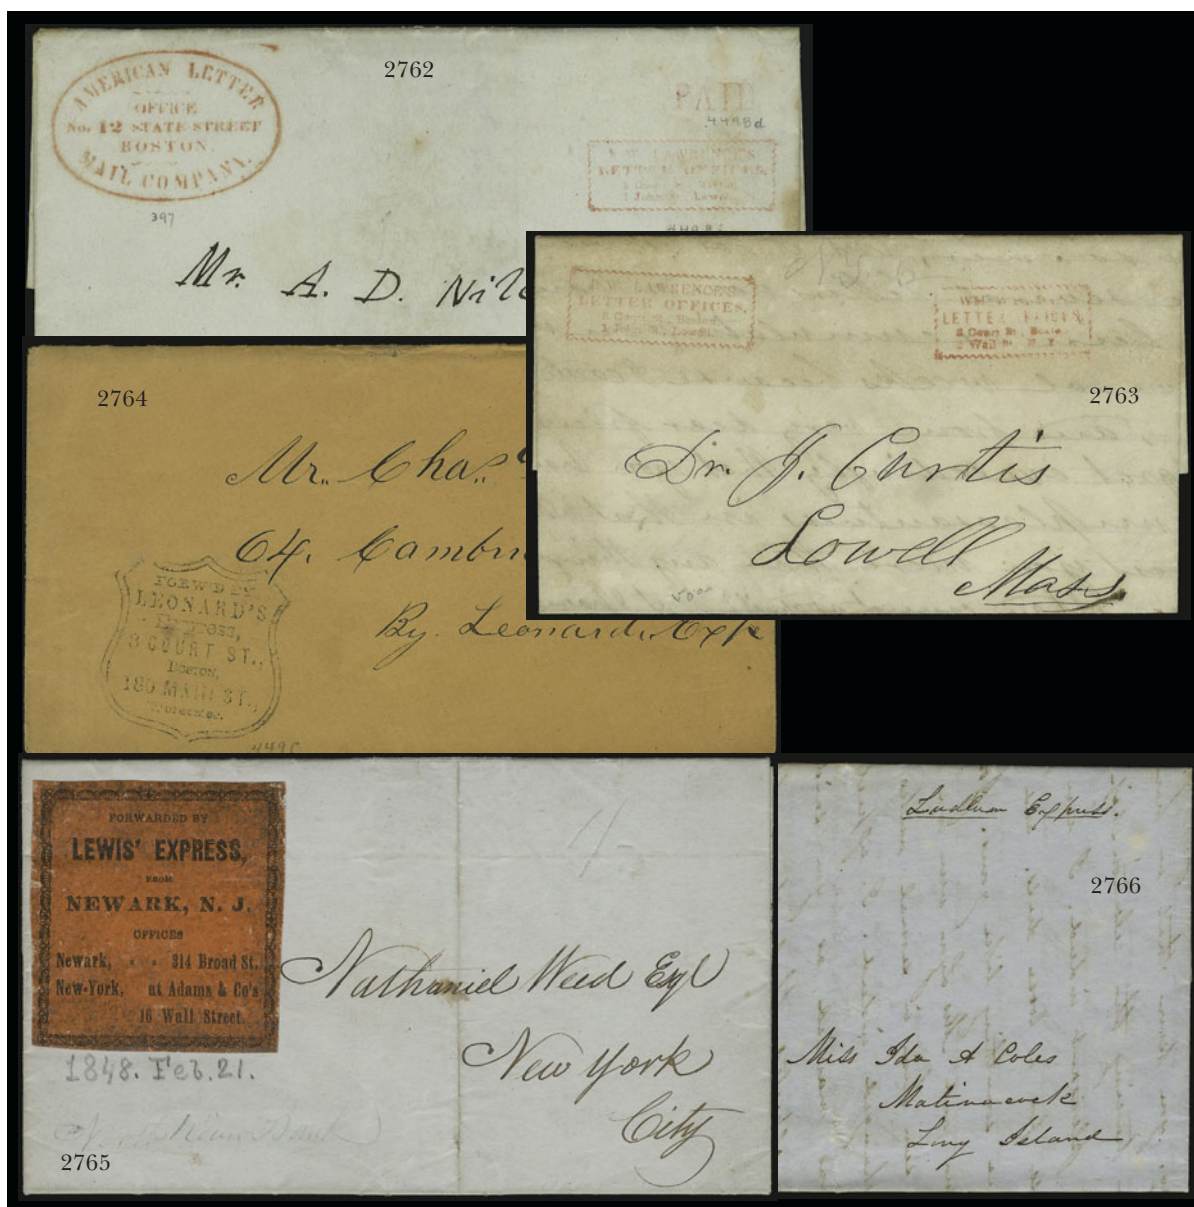 AMERICAN LETTER
OFFICE
No. 12 STATE STREET
BOSTON.
MAIL COMPANY.
397
2762
PAID
4498d
LAWRENCE'S
LETTER OFFICES,
Mr. A. D.
LAWRENCE'S
LETTER OFFICES,
8 Court St., Boston,
LETTER
2763
Dr. J. Curtis
Lowell
Mass
2764
Mr. Chas.
64.
By. Leonard's Exp
FORW'D BY
LEONARD'S
EXPRESS,
3 COURT ST.,
BOSTON,
180 MAIN ST.,
Worcester.
FORWARDED BY
LEWIS' EXPRESS,
FROM
NEWARK, N. J.
OFFICES
Newark, " " 314 Broad St.
New-York, at Adams & Co's
16 Wall Street.
1848. Feb. 21.
Nathaniel Weed Esq
New York
City
2765
Ludlum Express.
2766
Miss Ida A Coles
Matinacock
Long Island